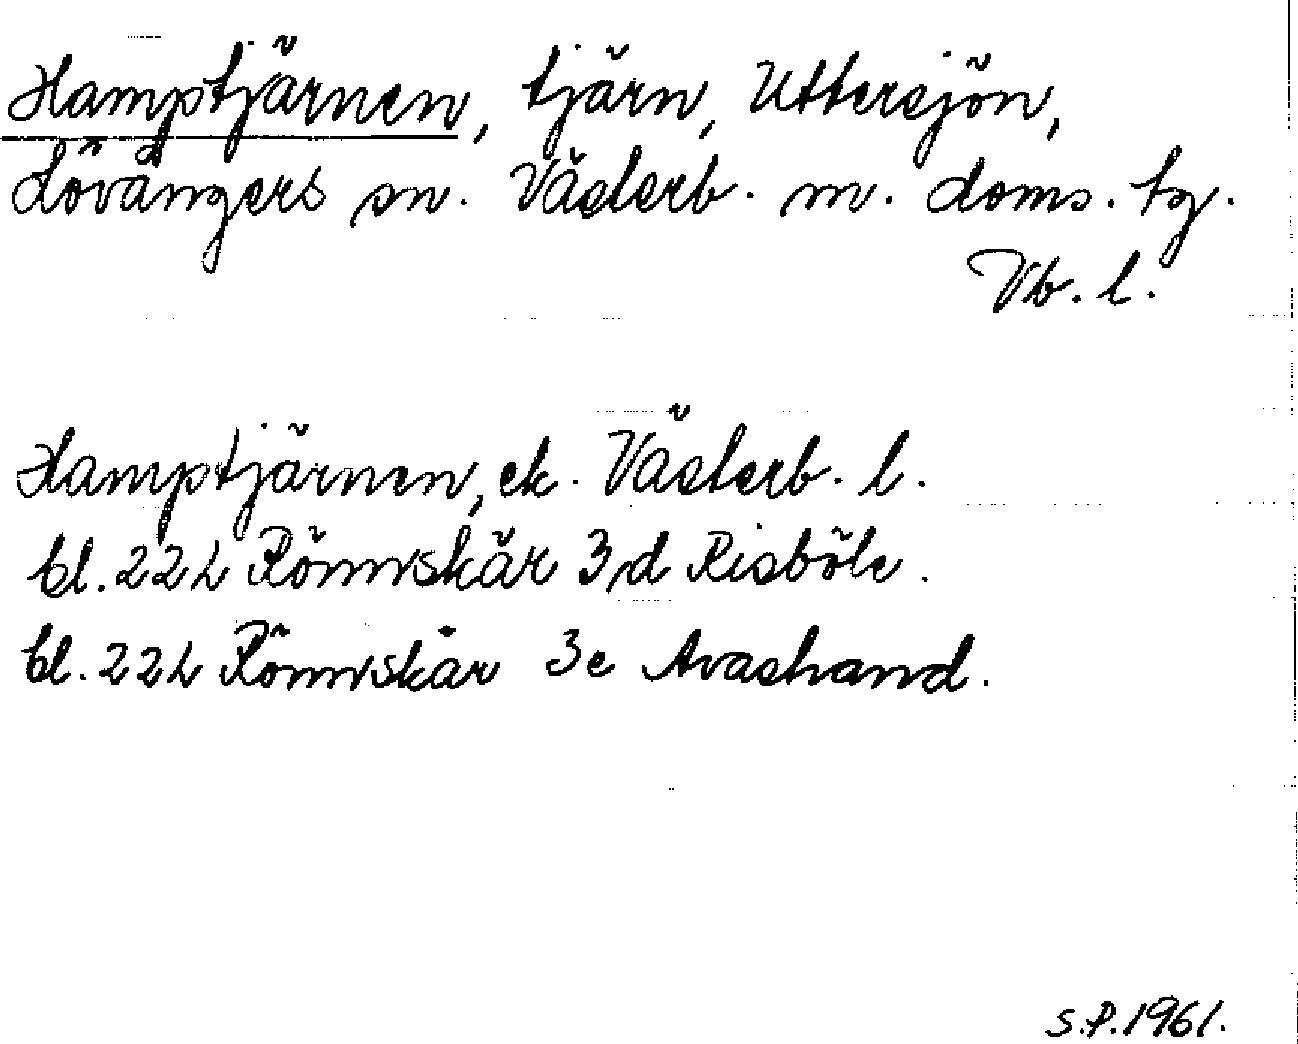 Hamptjärnen, tjärn, Uttersjön,
Lövångers sn. Västerb. m. doms. tg.
Vb. l.
Hamptjärnen, ek. Västerb. l.
bl. 22L Rönnskär 3d Risböle.
bl. 22L Rönnskär 3e Avastrand.
S.P. 1961.